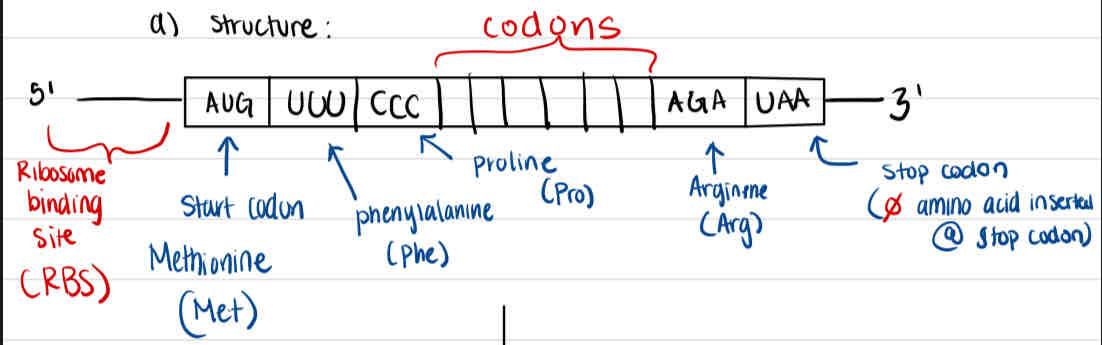 a) Structure:
codons
5' AUG UUU CCC AGA UAA 3'
Ribosome
binding
site
(RBS)
Start codon
Methionine
(Met)
phenylalanine
(Phe)
proline
(Pro)
Arginine
(Arg)
Stop codon
(∅ amino acid inserted
@ stop codon)